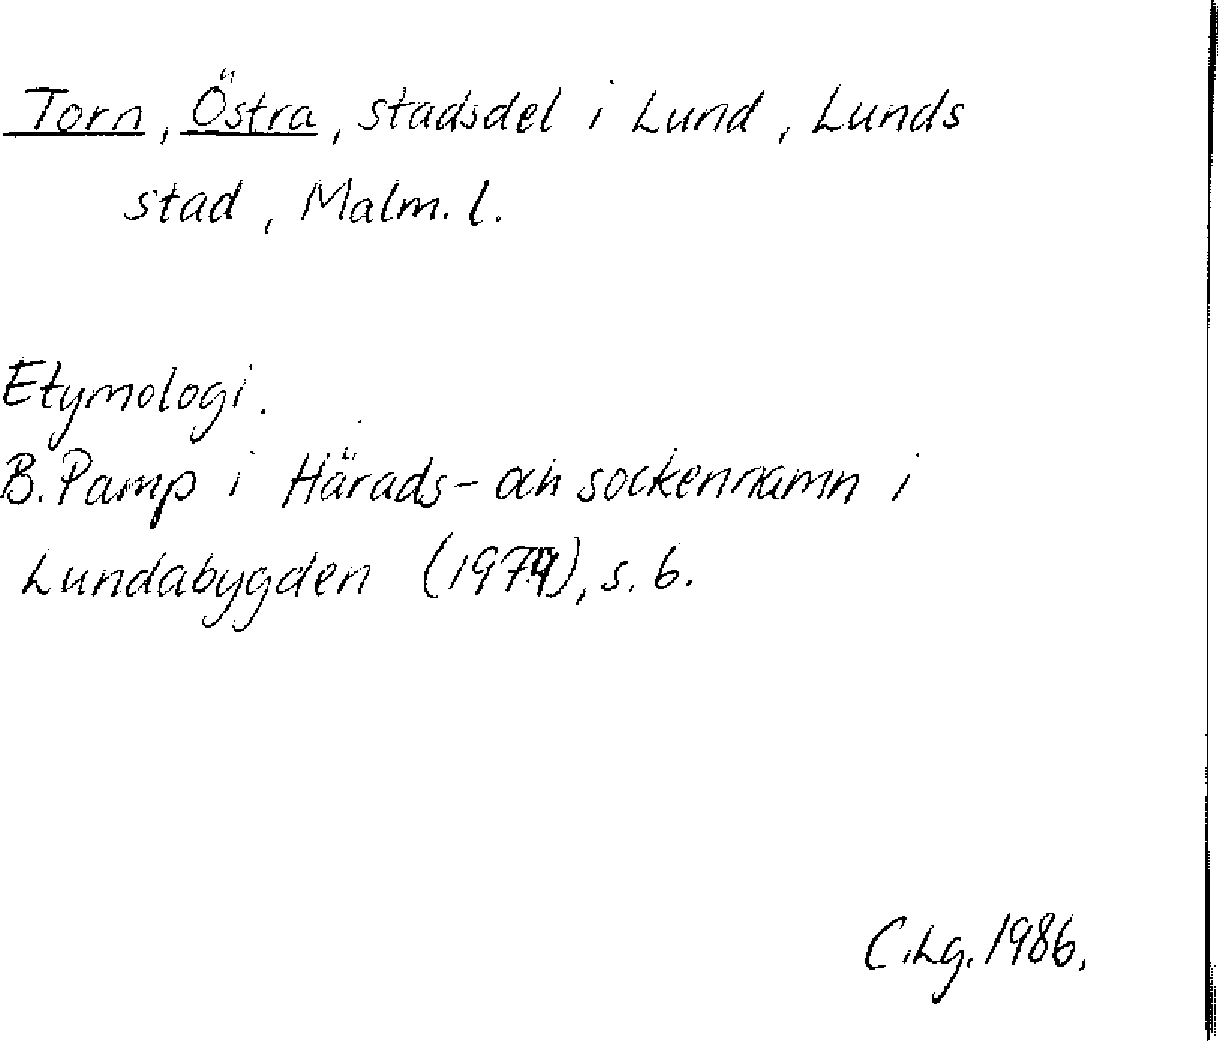 Torn, Östra, stadsdel i Lund, Lunds
stad, Malm. l.
Etymologi.
B. Pamp i Härads- och sockennamn i
Lundabygden (1979), s. 6.
C. Lg. 1986.